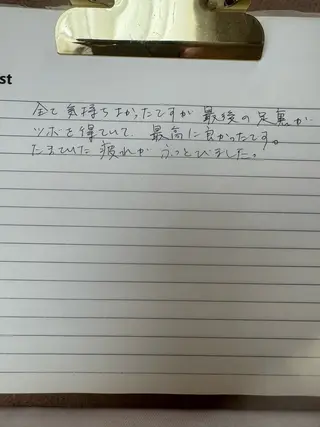 st
全て気持ちよかったですが最後の足裏が
ツボを得ていて、最高に良かったです。
たまっていた疲れがふっとびました。